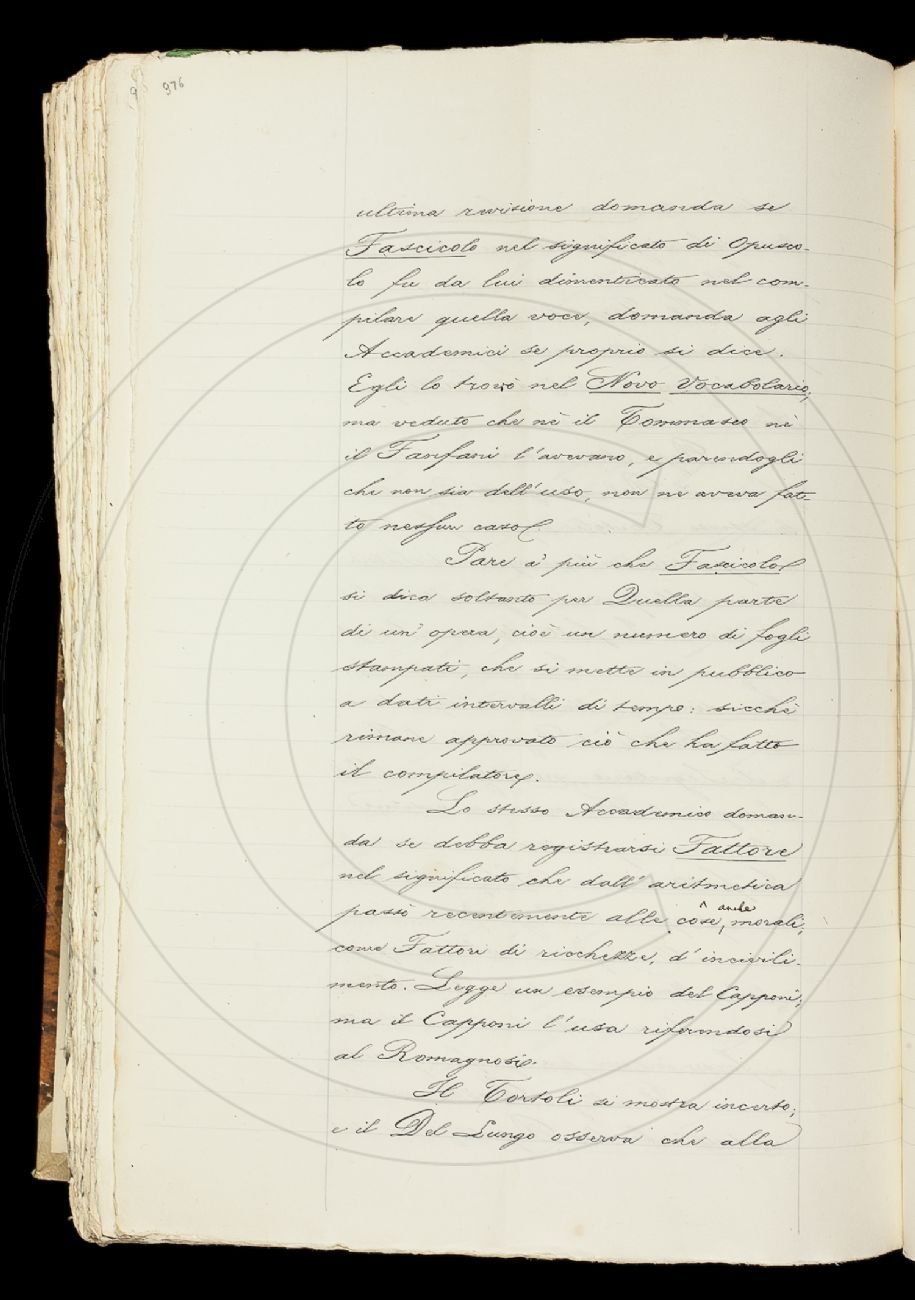 976
ultima revisione domanda se
Fascicolo nel significato di Opusco-
lo fu da lui dimenticato nel com-
pilare quella voce, domanda agli
Accademici se proprio si dice.
Egli lo trovò nel Novo Vocabolario;
ma veduto che nè il Tommaseo nè
il Fanfani l'avevano, e parendogli
che non sia dell'uso, non ne aveva fat-
to nessun caso.
Pare a' più che Fascicolo
si dica soltanto per Quella parte
di un' opera, cioè un numero di fogli
stampati, che si mette in pubblico
a dati intervalli di tempo: sicchè
rimane approvato ciò che ha fatto
il compilatore.
Lo stesso Accademico doman-
da se debba registrarsi Fattore
nel significato che dall' aritmetica
passò recentemente alle cose, anche morali,
come Fattori di ricchezze, d' incivili-
mento. Legge un esempio del Capponi;
ma il Capponi l'usa riferendosi
al Romagnosi.
Il Tortoli si mostra incerto;
e il Del Lungo osserva che alla